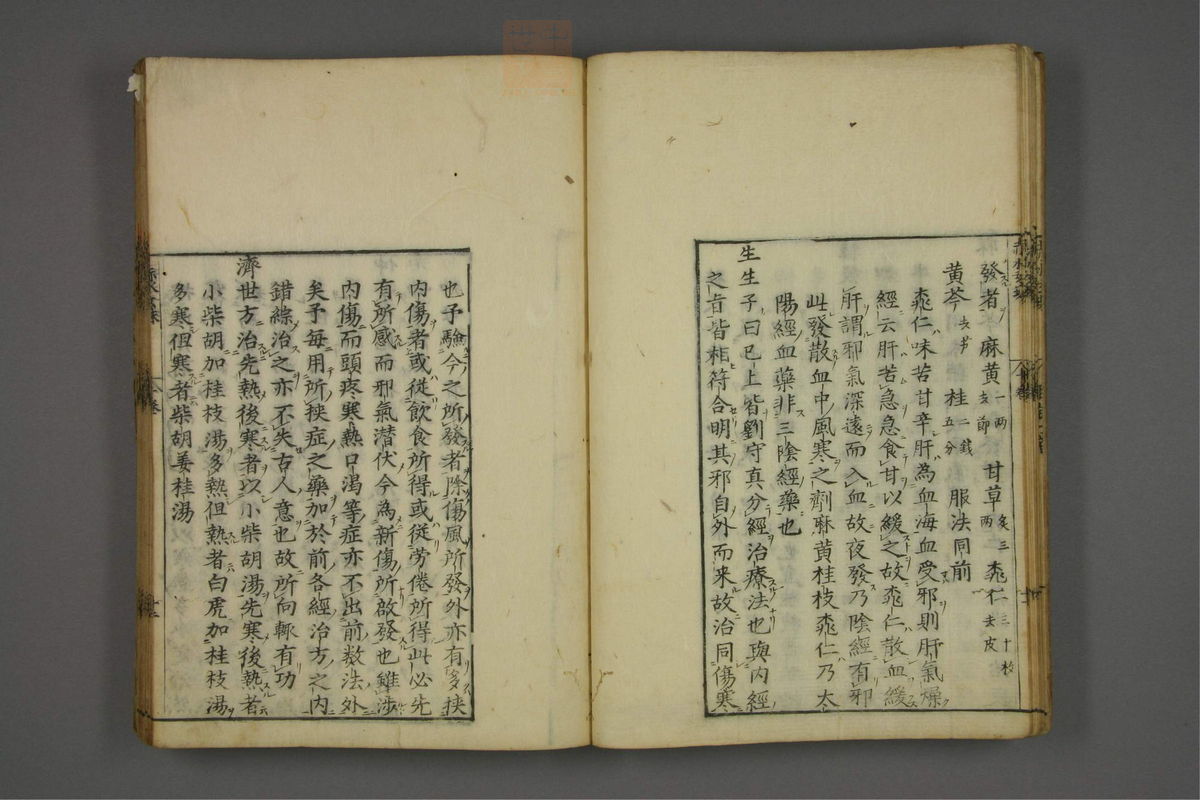 發者麻黄一兩去節甘草炙三兩桃仁三十枚去皮
黄芩去节桂二錢五分服法同前
桃仁味苦甘辛肝為血海血受邪則肝氣燥
經云肝苦急急食甘以緩之故桃仁散血緩
肝謂邪氣深遠而入血故夜發乃陰經有邪
此發散血中風寒之劑麻黄桂枝桃仁乃太
陽經血藥非三陰經藥也
生生子曰已上皆劉守真分經治療法也與内經
之旨皆相符合明其邪自外而来故治同傷寒
也予驗今之所發者除傷風所發外亦有多挾
内傷者或從飲食所得或從労倦所得此必先
有所感而邪氣潜伏今為新傷所啟發也雖涉
内傷而頭疼寒熱口渇等症亦不出前数法外
矣予每用所挾症之藥加於前各經治方之内
錯綜治之亦不失古人意也故所向輙有功
濟世方治先熱後寒者以小柴胡湯先寒後熱者
小柴胡加桂枝湯多熱但熱者白虎加桂枝湯
多寒但寒者柴胡姜桂湯